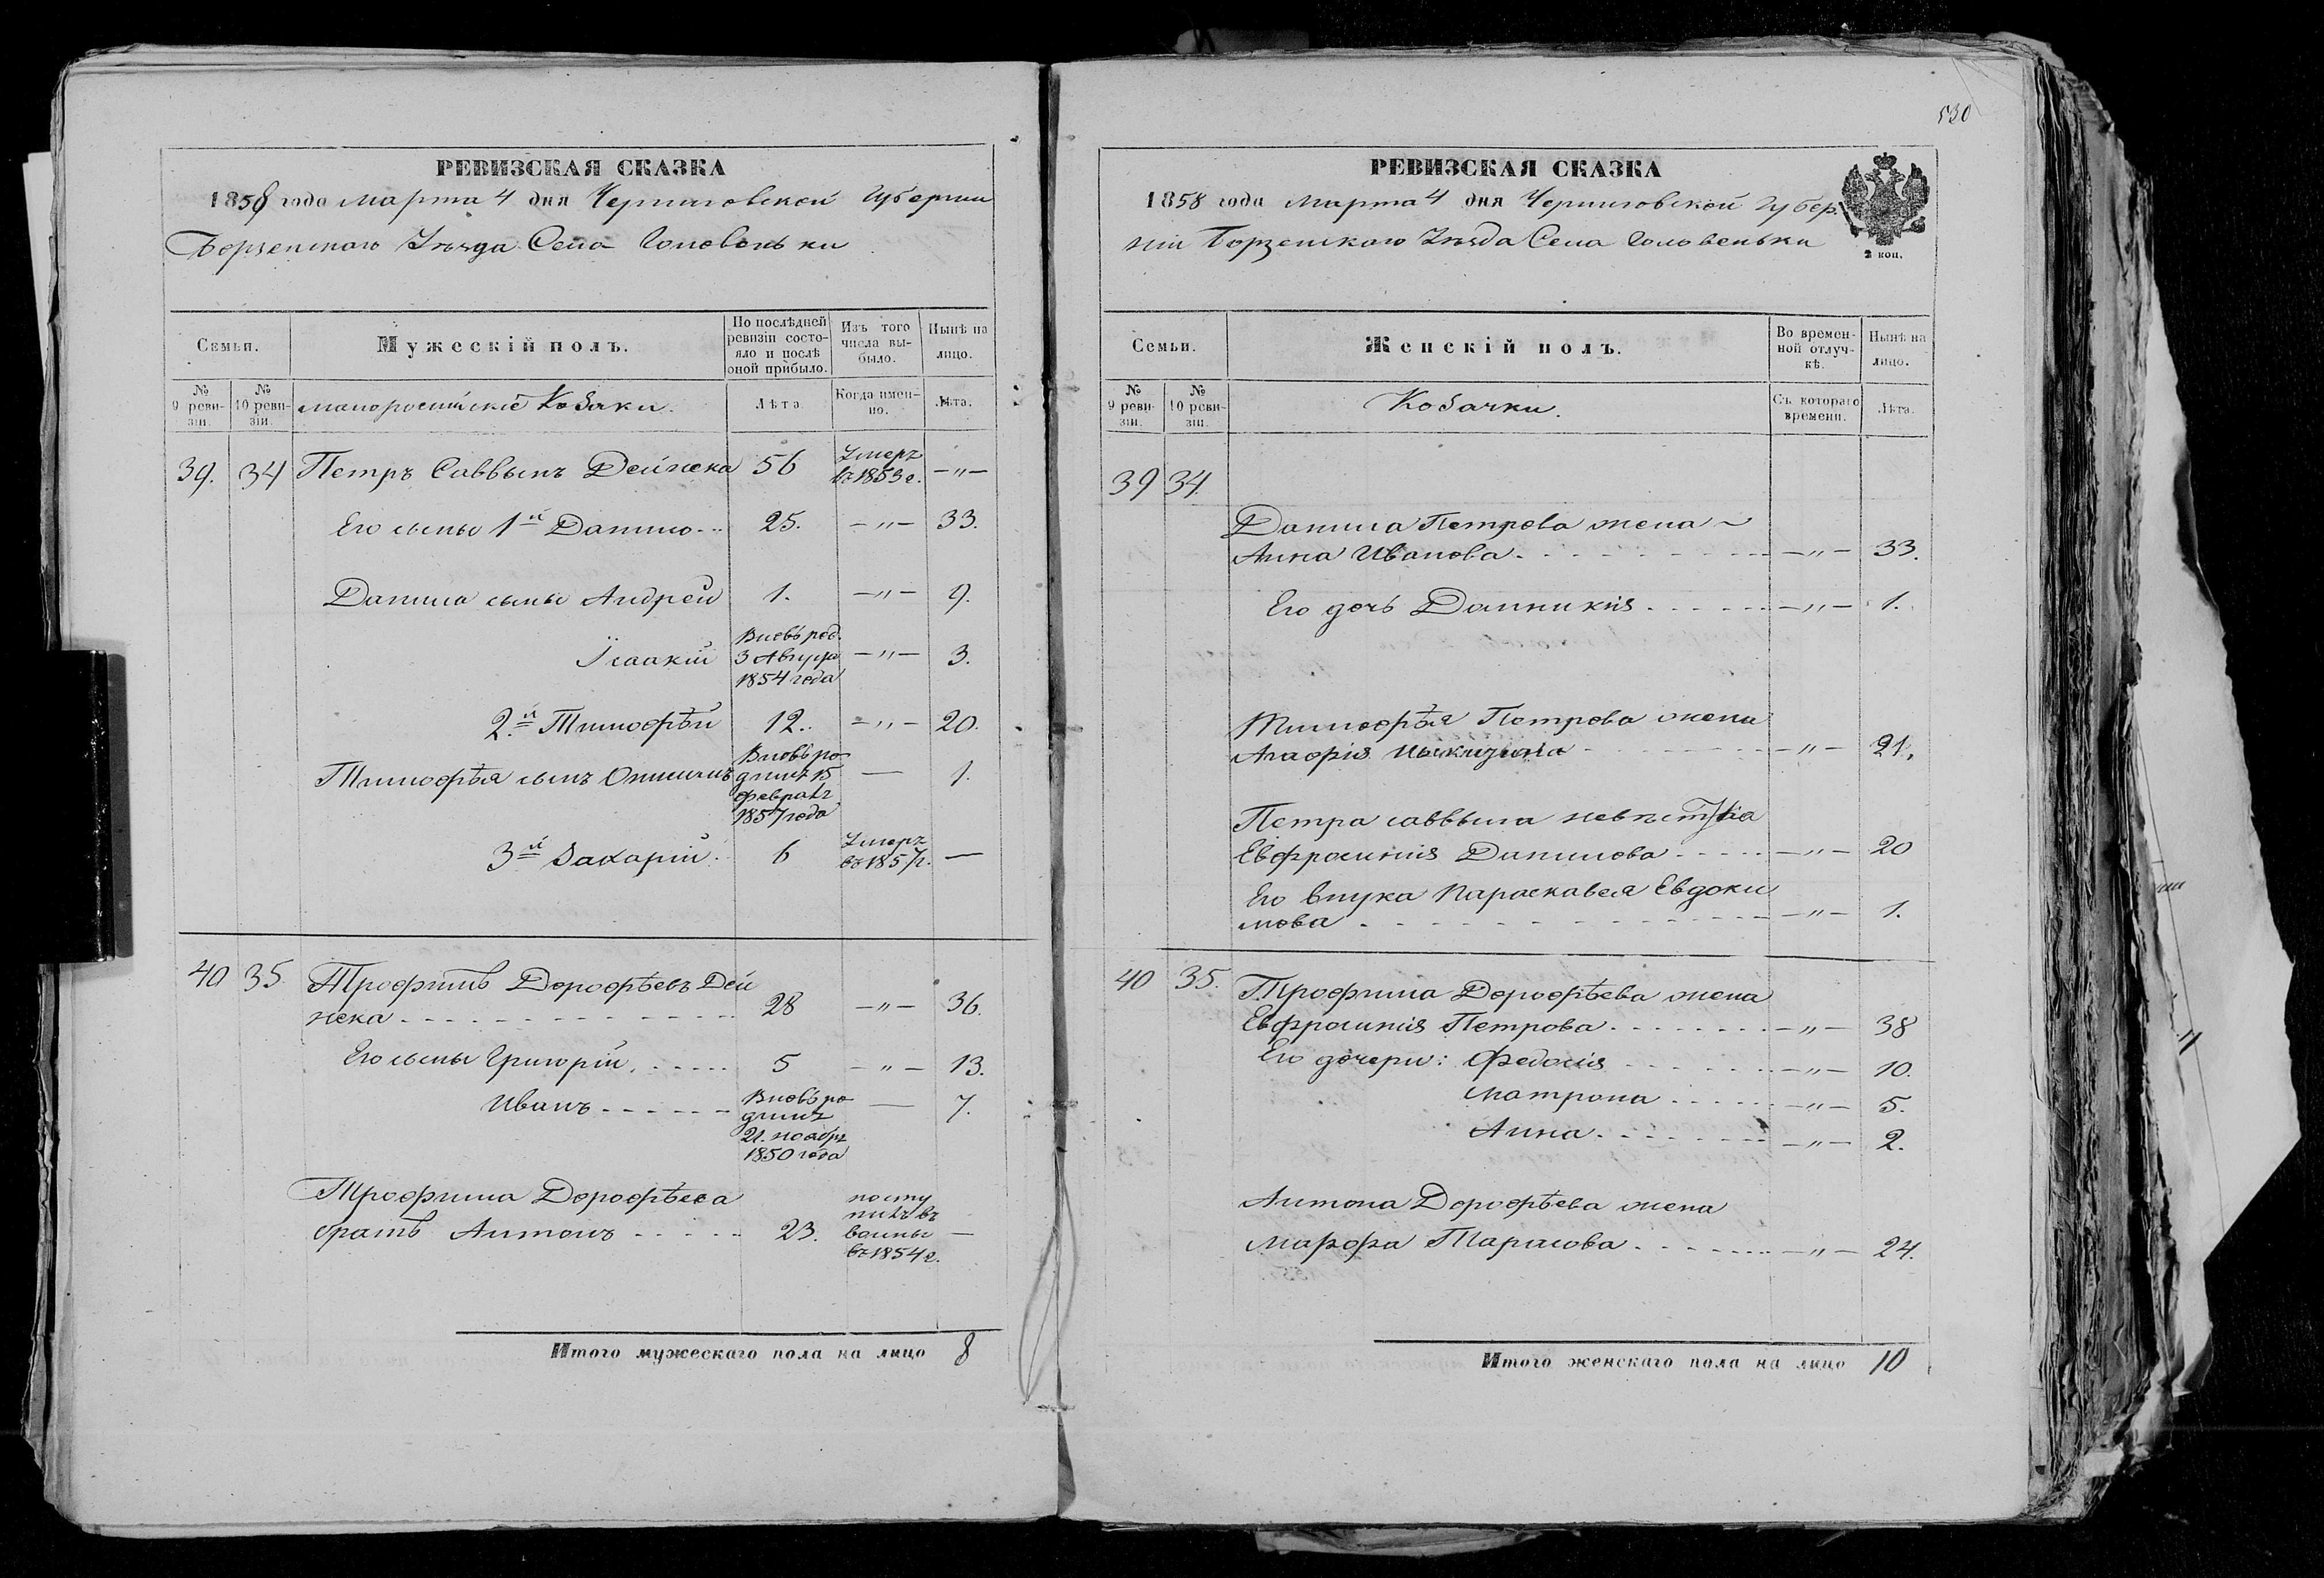 530
РЕВИЗСКАЯ СКАЗКА
1858 года Марта 4 дня Черниговской Губернии
Борзенского Уѣзда Села Головеньки
Семьи.
Мужескій полъ.
По послѣдней ревизіи состояло и послѣ оной прибыло.
Изъ того числа выбыло.
Нынѣ на лицо.
№ 9 ревизіи.
№ 10 ревизіи.
малоросійскіе Козаки.
Лѣта
Когда именно.
Лѣта.
39. 34 Петръ Саввынъ Дейнека 56 Умеръ въ 1853 г. —"—
Его сыны 1й Данило 25. —"— 33.
Данила сыны Андрей 1. —"— 9.
Ісаакій Вновь род. 3 Августа 1854 года —"— 3.
2.й Тимофѣй 12. —"— 20.
Тимофѣя сынъ Вновь родился 15 февраля 1857 года — 1.
3й Захарій. 6 Умеръ въ 1857 г. —
40 35 Трофимъ Дорофѣевъ Дей
нека 28 —"— 36.
Его сыны Григорій. 5 —"— 13.
Иванъ Вновь родился 21. ноября 1850 года — 7.
Трофима Дорофѣева
братъ Антонъ 23. поступилъ въ воины въ 1854 г. —
Итого мужескаго пола на лицо 8
РЕВИЗСКАЯ СКАЗКА
1858 года Марта 4 дня Черниговской Губер.
ніи Борзенскаго Уѣзда Села Головеньки
2 коп.
Семьи.
Женскій полъ.
Во временной отлучкѣ.
Нынѣ на лицо.
№ 9 ревизіи.
№ 10 ревизіи.
Козачки.
Съ котораго времени.
Лѣта.
39 34.
Данила Петрова жена
Анна Иванова —"— 33.
Его дочь Домникія —"— 1.
Тимофѣя Петрова жена
Агафія —"— 21.
Петра Саввына невѣстка
Евфросинія Данилова —"— 20
Его внука Параскавея Евдоки
мова —"— 1.
40 35. Трофима Дорофѣева жена
Евфросинія Петрова —"— 38
Его дочери: Федосія —"— 10.
Матрона —"— 5.
Анна —"— 2.
Антона Дорофѣева жена
Марфа Тарасова —"— 24.
Итого женскаго пола на лицо 10